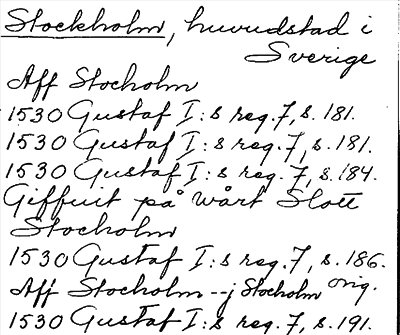 Stockholm, huvudstad i
Sverige
Aff Stocholm
1530 Gustaf I:s reg. 7, s. 181.
1530 Gustaf I:s reg. 7, s. 181.
1530 Gustaf I:s reg. 7, s. 184.
Giffuit på wårt Slott
Stocholm
1530 Gustaf I:s reg. 7, s. 186.
Aff Stocholm -- j Stocholm orig.
1530 Gustaf I:s reg. 7, s. 191.